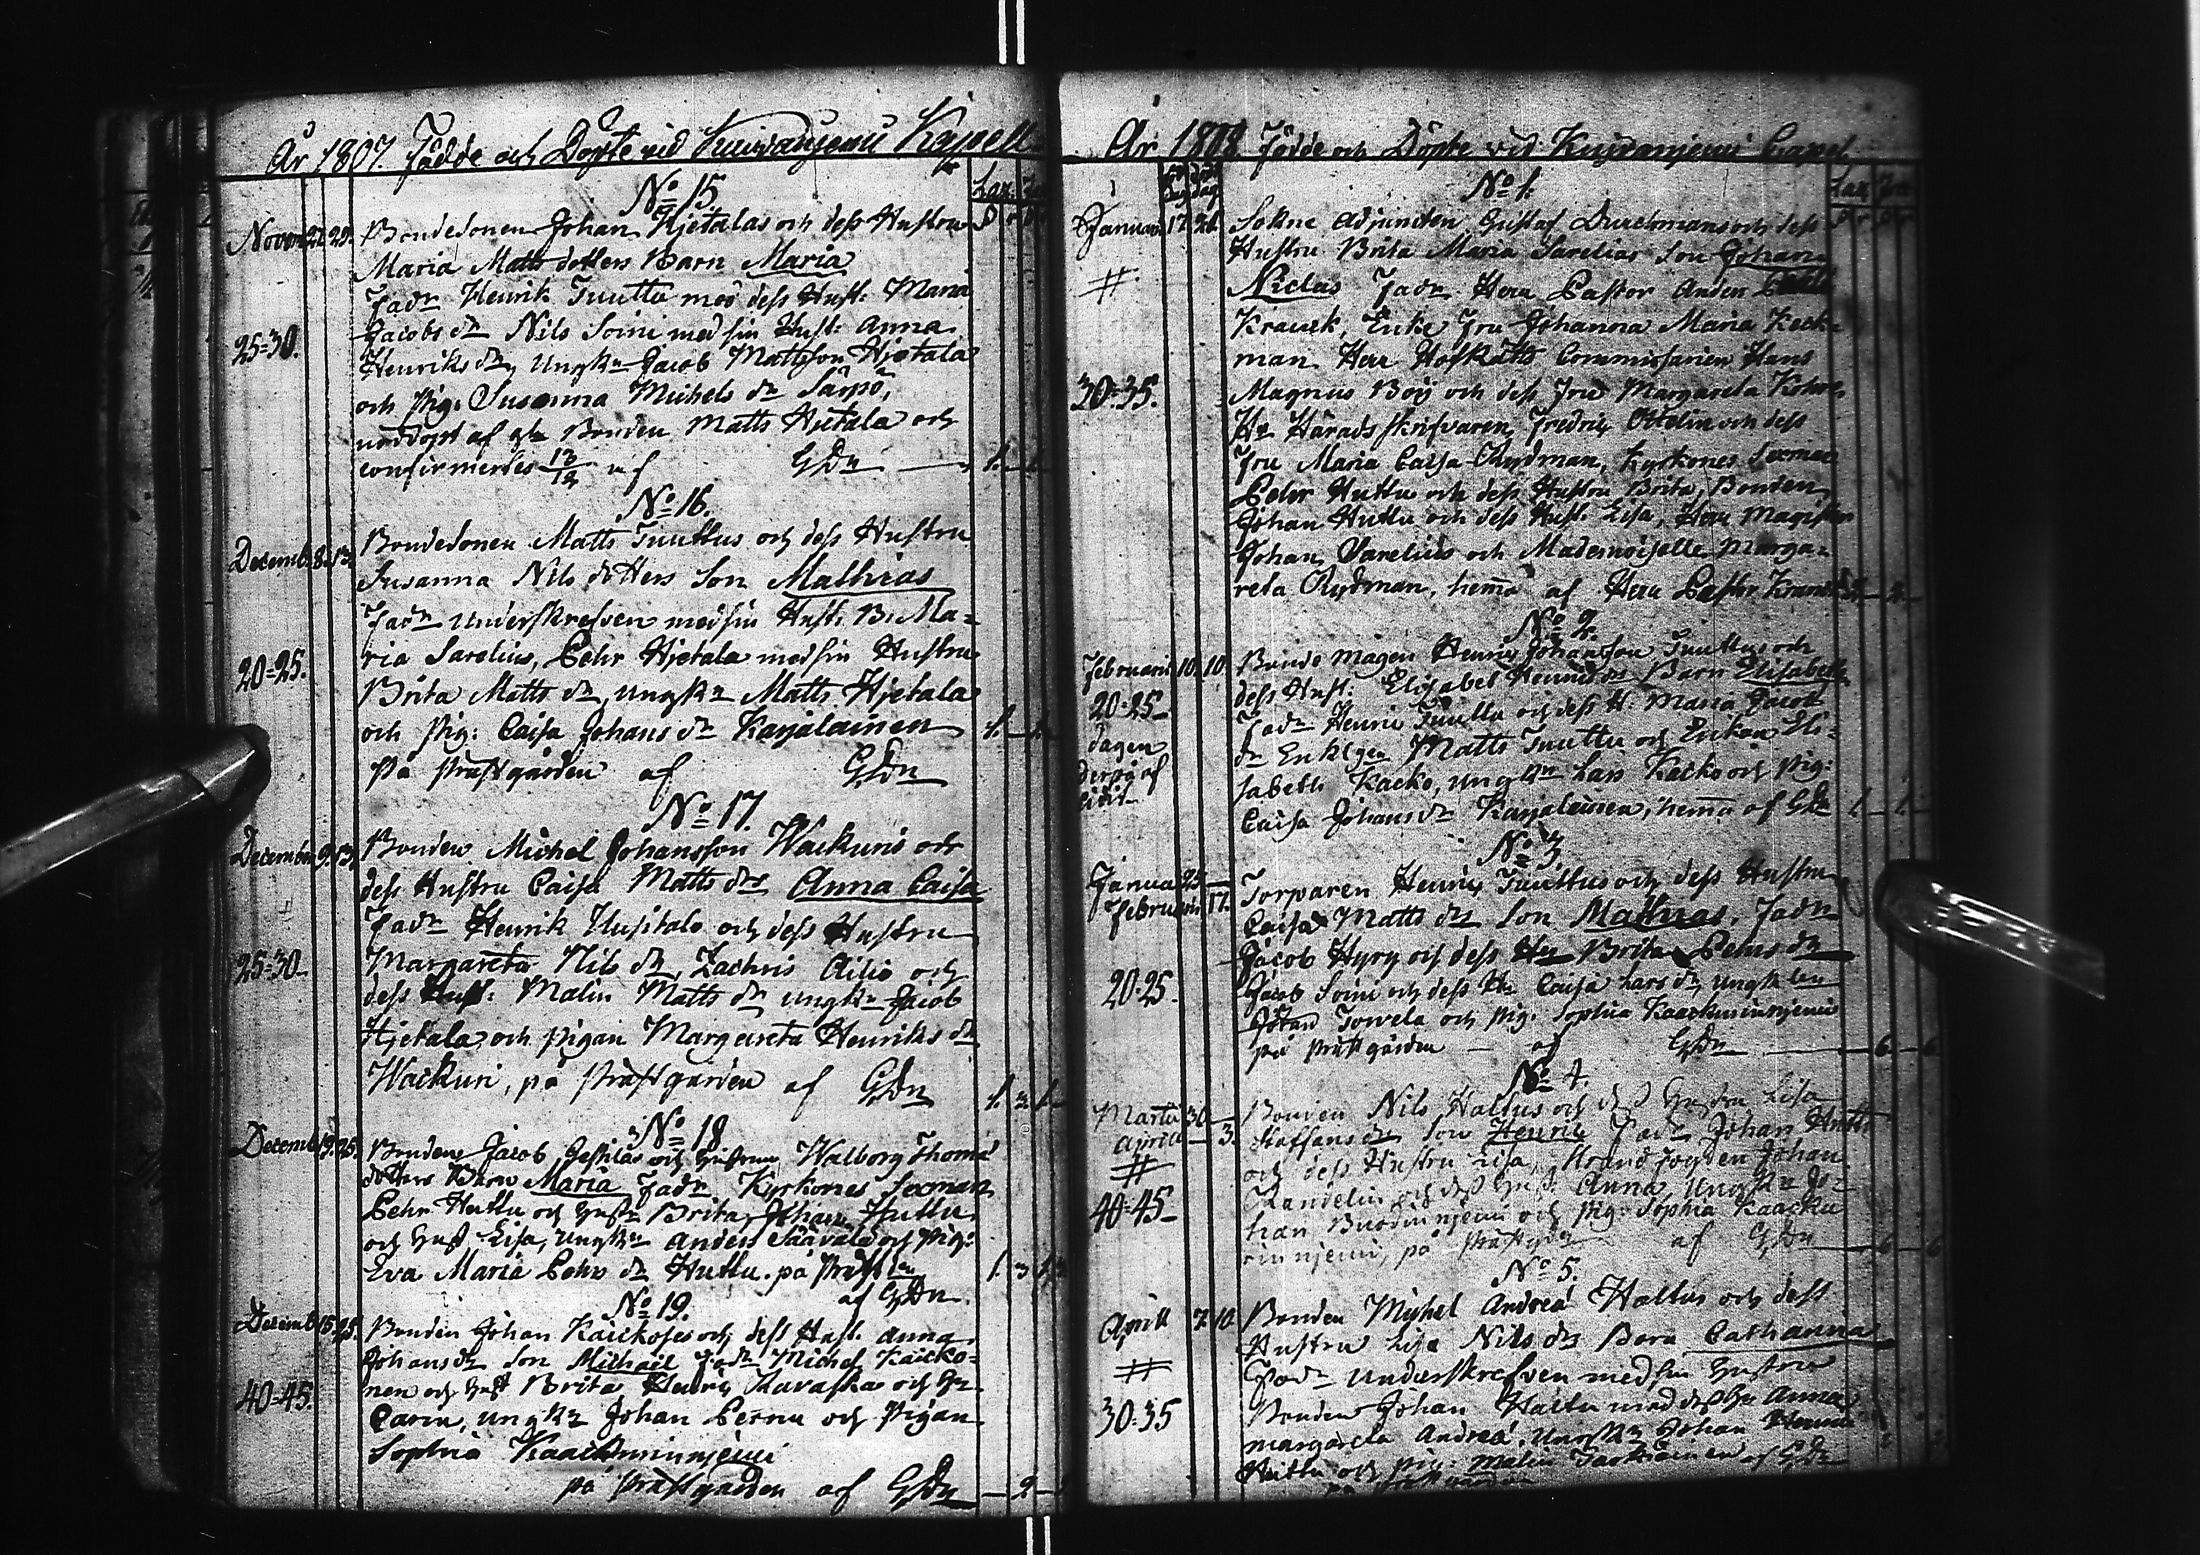 År 1807. Födde och Döpte vid Kuivaniemi Kapell
Lax.
No 15.
Novem 22 29. Bondesonen Johan Hjetalas och dess Hustru
Maria Matts dotters Barn Maria
Fadr Henrik Tuuttu med dess Hust: Maria
Jacobs dr Nils Soini med sin Hust: Anna
25=30.
Henriks dr, Ungkn Jacob Mattsson Hjetala
och Pig: Susanna Michels dr
nöddöpt af Bonden Matts Hjetala och
confirmerdes 13/12 af GDn 1.
No 16.
Decemb: 8. 13. Bondesonen Matts Tuuttus och dess Hustru
Susanna Nils dotters Son Mathias
Fadr Underskrefven med sin Hust: Br: Ma=
ria Sarelius, Pehr Hjetala med sin Hustru
20=25.
Brita Matts dr, ungkn Matts Hjetala
och Pig: Caisa Johans dr Karjalainen 1.
På Prästgården af GDn
No 17.
December 9. 13. Bonden Michel Johansson Wackuris och
dess Hustru Caisa Matts drs Anna Caisa
Fadr Henrik Uusitalo och dess Hustru
25=30
Margareta Nils dr, Zachris Ailio och
dess Hust: Malin Matts dr ungkn Jacob
Hjetala och Pigan Margareta Henriks dr
Wackuri, på Prästgården af GDn 1. 2 1.
No 18
Decemb 19. 25. Bonden Jacob och Hustrus Walborg Thomæ
dotters Barn Maria Fadr Kyrkones Sexman
Pehr Huttu och Hust Brita, Johan Huttu
och Hust Lisa, ungkn Anders Säävälä och Pig:
Eva Maria Pehrs dr Huttu. på Prästgn 1. 3
af GDn
No 19.
Decemb 15. 25. Bonden Johan Kaickoses och dess Hust. Anna
Johans dr Son Michael Fadr Michel Kaicko=
nen och Hust Brita, Henric Ravaska och Hu
40=45.
Carin, ungkn Johan Perttu och Pigan
Sophia Kaackuriniemi
på Prästgården af GDn — 2.
År 1808. Födde och Döpte vid Kuivaniemi Capel.
Lax
No 1.
Januari 17. Sokne Adjuncten Gustaf Durchmans och dess
Hustru Brita Maria Sarelias Son Johan
# Niclas Fadr. Herr Pastor Anders
Kranck, Enke Fru Johanna Maria Keck=
man Herr HofRätts Commissarien Hans
30=35. Magnus Boij och dess Fru Margareta
Hr Häradsskrifvaren Fredric Ottelin och dess
Fru Maria Caisa Rydman, Kyrkones Sexman
Pehr Huttu och dess Hustru Brita, Bonden
Johan Huttu och dess Hust: Lisa, Herr Magister
Johan Sarelius och Mademoiselle Marga=
reta Rydman, hemma af Herr Pastor Kranck
No 2.
Februarii 10. 10. Bonde Magen Henric Johansson Tuuttus och
dess Hust: Elisabet Henrics drs Barn Elisabeth
20=25 Fadr Henric Tuuttu och dess H: Maria Jacobs
dagen dr Matts Tuuttu och Enkan Eli=
derpå af sabeth Kacko, ungkn Lars Kacko och Pig:
Caisa Johans dr Karjalainen, hemma af GDn 1. 1.
No 3
Janua 25 Torparen Henric Tuuttus och dess Hustru
Februarii 11. Caisa Matts drs Son Mathias. Fadr
Jacob Hyry och dess Hu Brita Pehrs dr
20=25. Jacob Soini och dess Hu Caisa Lars dr, ungkn
Johan och Pig: Sophia Kaackuriniemi
på Prästgården af GDn 6. 6.
No 4.
Martii 30 Bonden Nils Haltus och dess Hustru Lisa
April 3. Staffans drs Son Henric Fadr Johan Huttu
# och dess Hustru Lisa, Johan
40=45 Zandelin och dess Hust: Anna, Ungkn Jo=
han och Pig: Sophia Kaacku
rinniemi, på Prästgn af GDn 6 6
No 5.
April 7. 10. Bonden Michel Andreæ Haltus och dess
Hustru Lisa Nils drs Barn Catharina
# Fadr Underskrefven med sin Hustru
30=35 Bonden Johan Haltu med dess Hu Anna
Margareta Andreæ, Ungkn Johan
Huttu och Pig: Malin af GDn